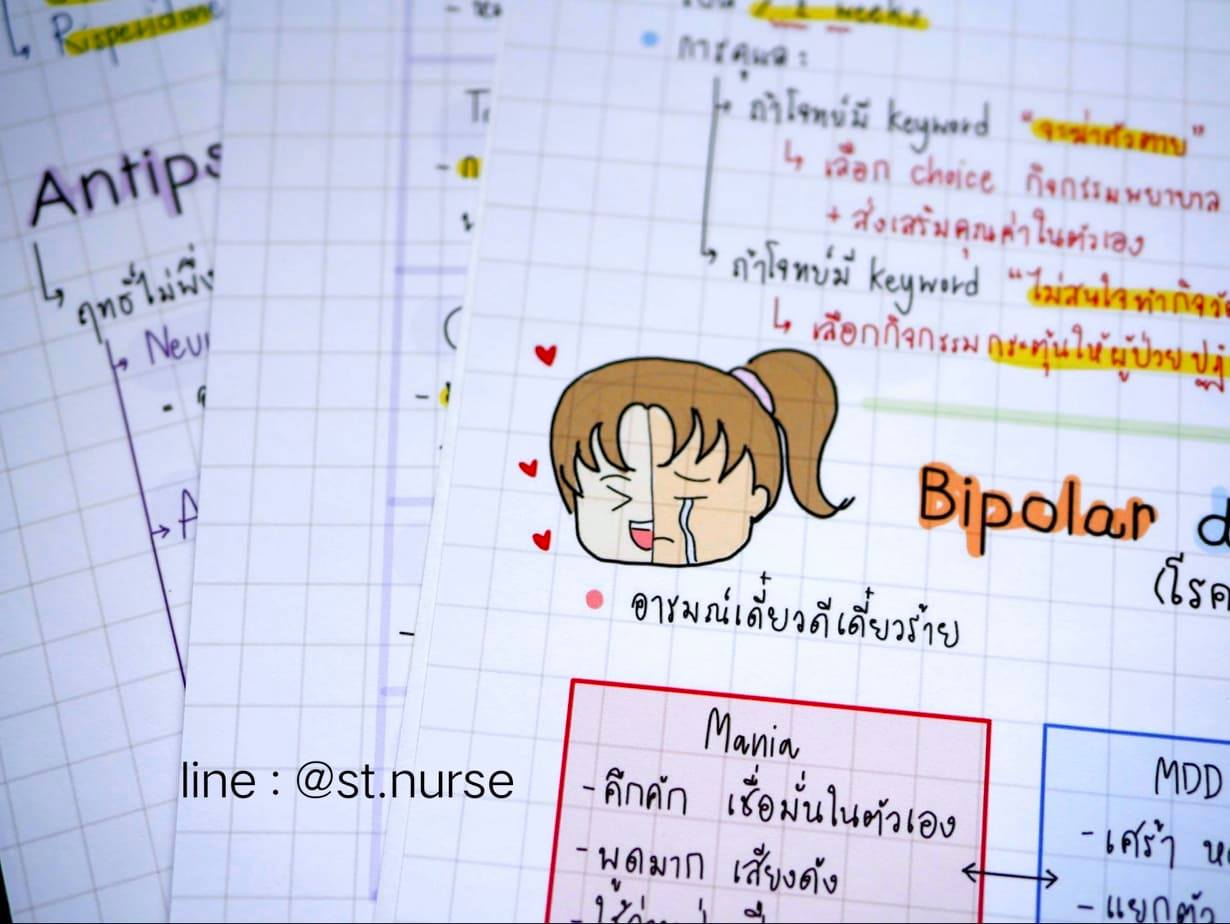 Risperidone
Antips
ฤทธิ์ไม่พึ่ง
Neur
weeks
การดูแล :
ถ้าโจทย์มี keyword "จะฆ่าตัวตาย"
เลือก choice กิจกรรมพยาบาล
+ ส่งเสริมคุณค่าในตัวเอง
ถ้าโจทย์มี keyword "ไม่สนใจทำกิจวั
เลือกกิจกรรมกระตุ้นให้ผู้ป่วยปฏิ
Bipolar d
(โรค
อารมณ์เดี๋ยวดีเดี๋ยวร้าย
Mania
- คึกคัก เชื่อมั่นในตัวเอง
- พูดมาก เสียงดัง
MDD
- เศร้า ห
- แยกตัว
line : @st.nurse